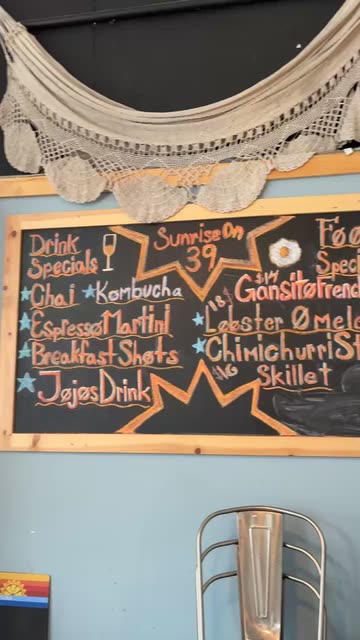 Drink
Specials
Chai Kømbucha
EspressøMartini
BreakfastShøts
JøjøsDrink
SunriseOn
39
Føø
Speci
$14
GansitøFrenc
18
Løbster Ømele
ChimichurriSt
Skillet